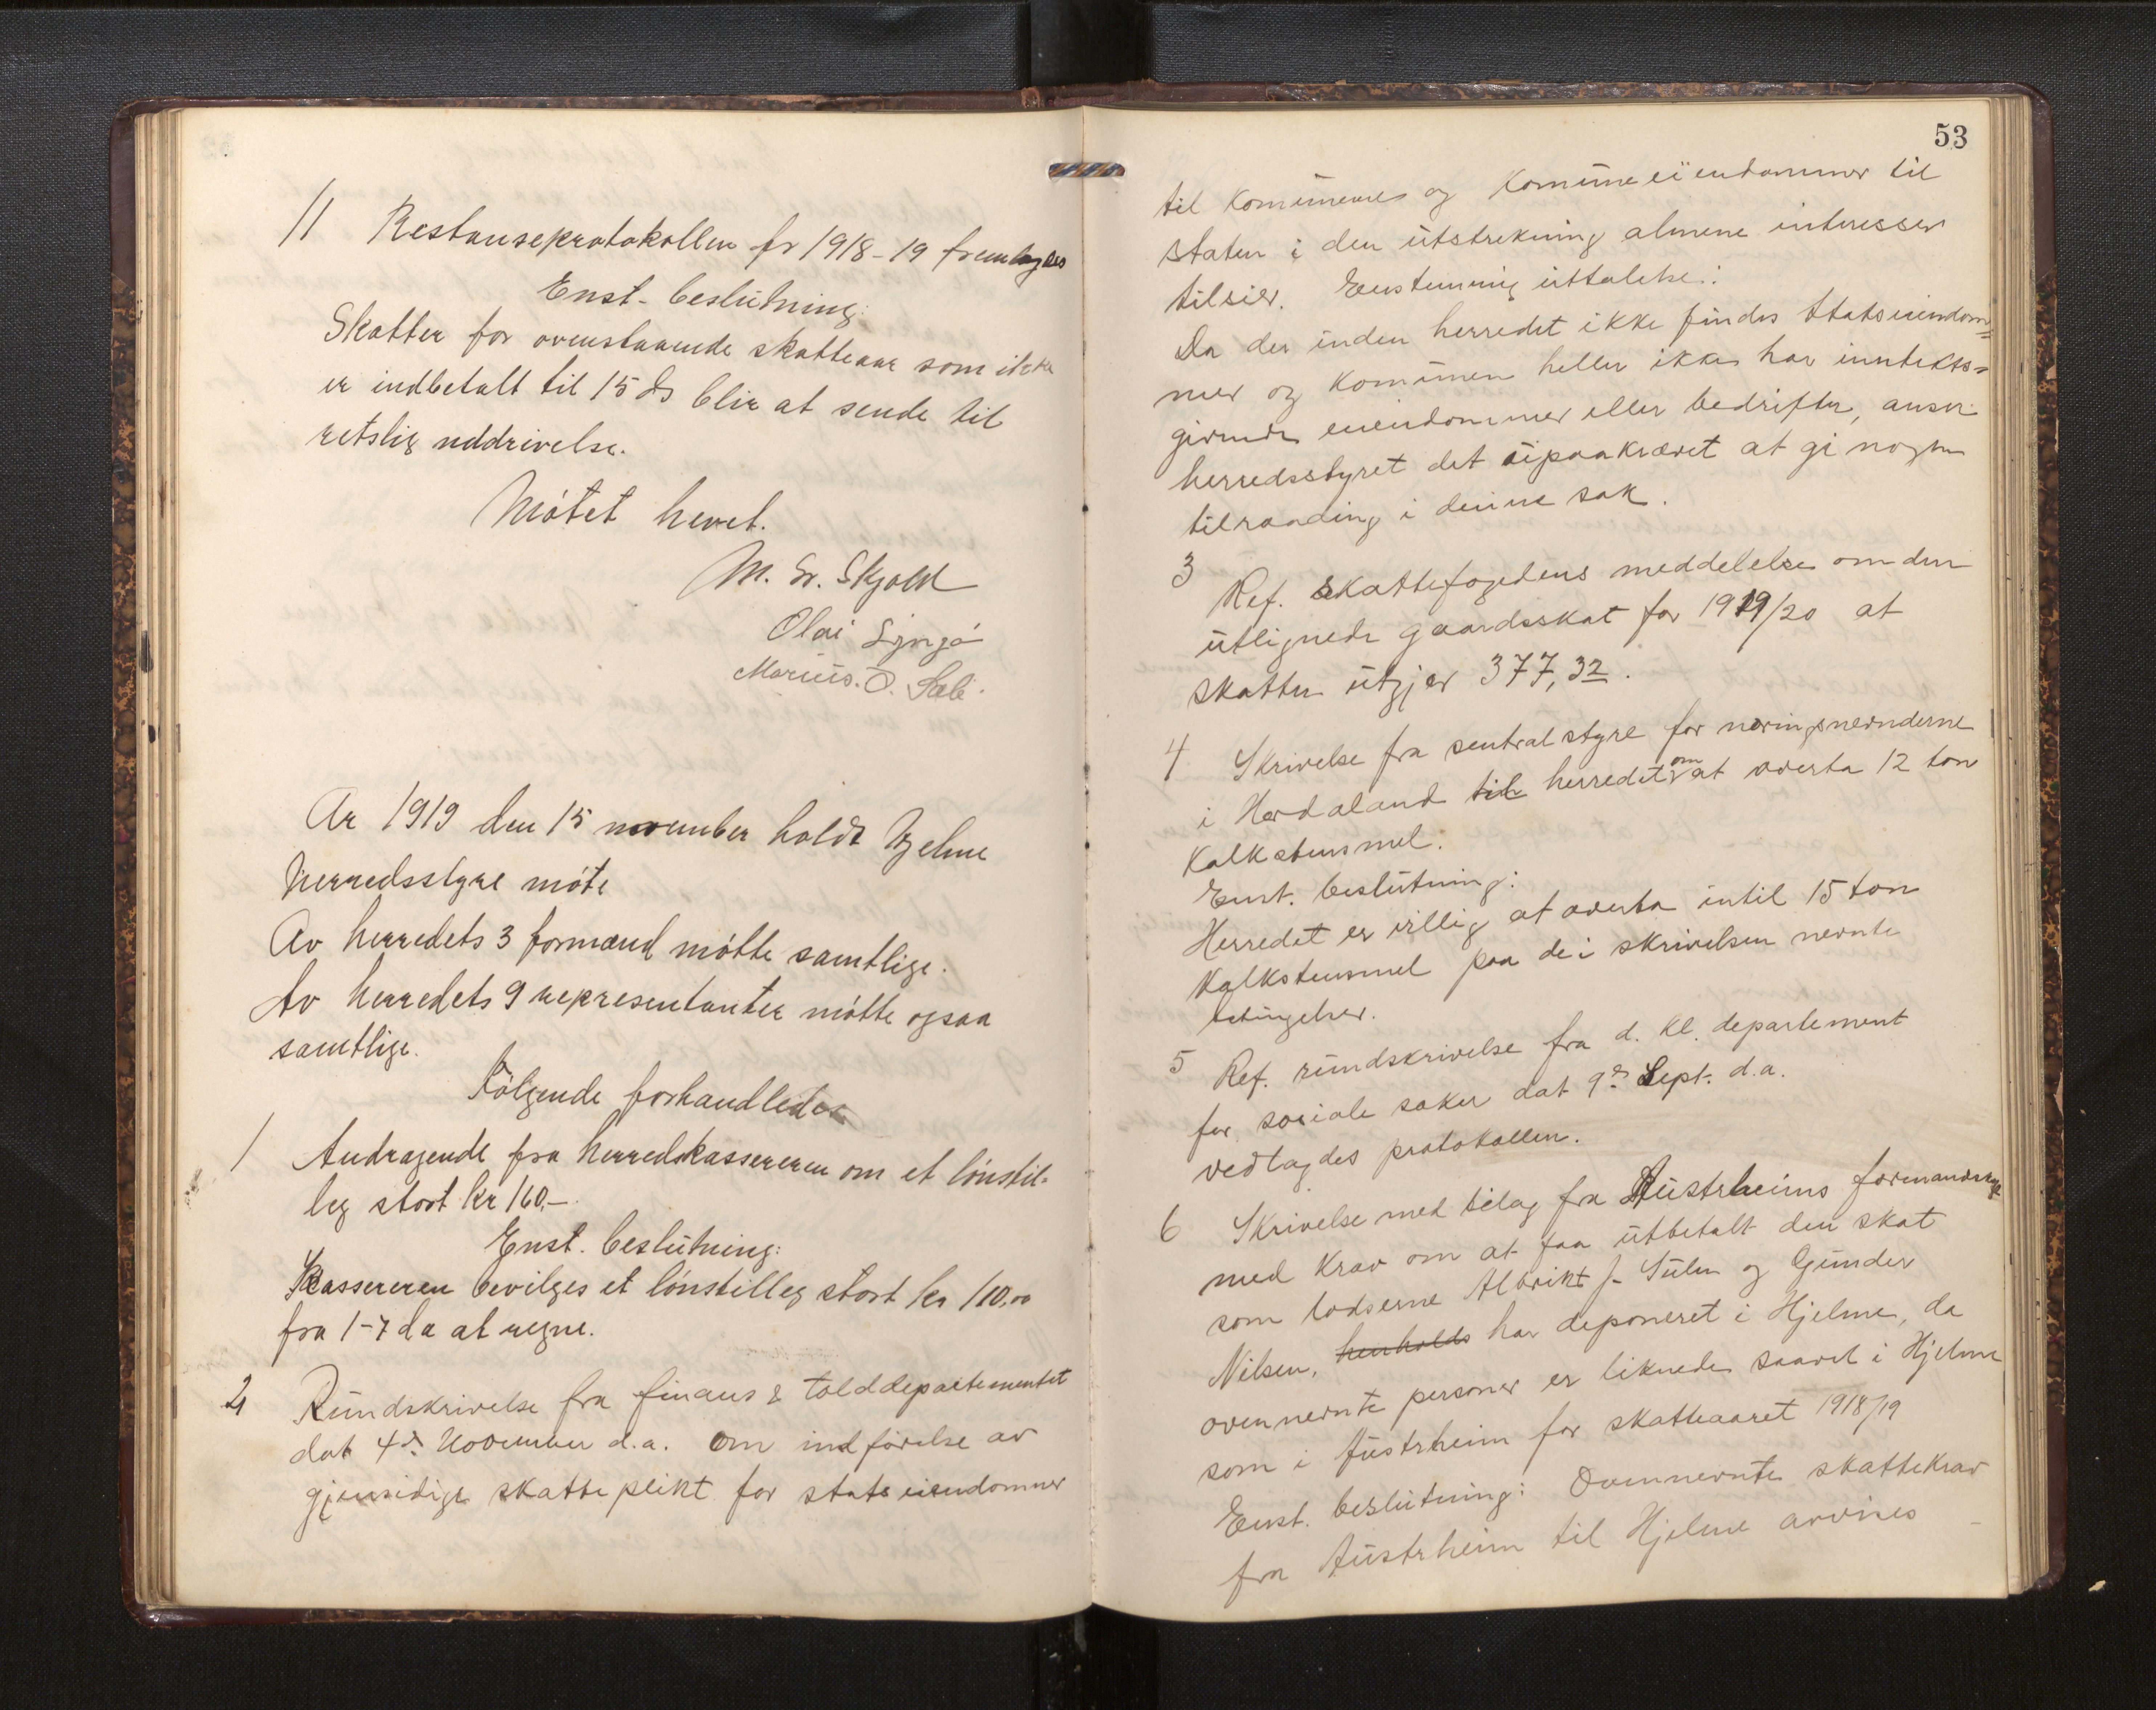 11 Restanseprotokollen fr 1918-19 fremlagdes
Enst- beslutning:
Skatter for ovenstaaende skatteaar som ikke
er indbetalt til 15 ds blir at sende til
retslig inddrivelse.
Møtet hevet.
M. Sr. Skjold
Olai
Marius. O. Sæle.
Ar 1919 den 15 november holdt Hjelme
herredsstyre møte
Av herredets 3 formænd møtte samtlige.
Av herredets 9 representanter møtte ogsaa
samtlige.
Følgende forhandledes
1 Andragende fra herredskassereren om et lønstil-
leg stort kr 160,-
Enst. beslutning:
Kassereren bevilges et lønstilleg stort kr 110,00
fra 1-7 da at regne.
2 Rundskrivelse fra finans & tolddepartementet
dat 4de November d.a. om indførelse av
gjensidige skatteplikt for statseiendomer
53
til komunenes og komuneeiendommer til
staten i den utstrekning almene interesser
tilsier. Eenstemmig uttalelse:
Da der inden herredet ikke findes Statseiendom=
mer og komunen heller ikke har inntekts=
givende eieendommer eller bedrifter, anser
herredsstyret det eipaakrævet at gi nogen
tilraading i denne sak.
3 Ref. Skattefogedens meddelelse om den
utlignede gaardsskat for 1919/20 at
skatten utgjør 377,32.
4 Skrivelse fra sentralstyre for neringsnevnderne
i Hordaland til herredet om at overta 12 ton
Kalkstensmel.
Enst. beslutning:
Herredet er villig at overta intil 15 ton
Kalkstensmel paa de i skrivelsen nevnte
betingelser.
5 Ref. rundskrivelse fra d. kl. departement
for sosiale saker dat 9de Sept. d.a.
vedtagdes protokollen.
6 Skrivelse med bilag fra Austrheims formandskap
med krav om at faa utbetalt den skat
som lodserne Albrikt J. Sulen og Gunder
Nilsen, henholds har deponeret i Hjelme, da
ovennevnte personer er liknede saavel i Hjelme
som i Austrheim for skatteaaret 1918/19
Enst. beslutning: Ovennevnte skattekrav
fra Austrheim til Hjelme avvises